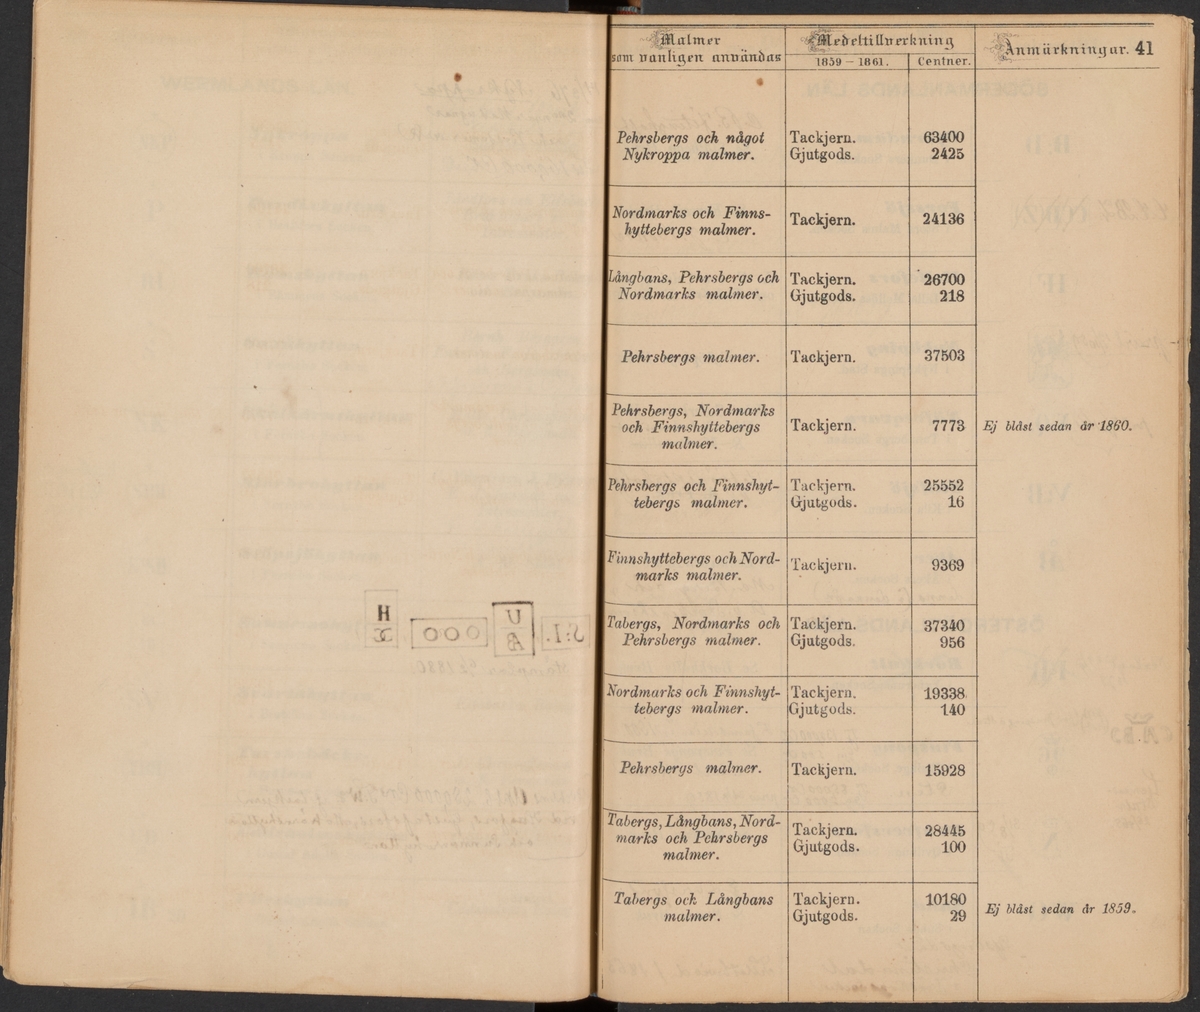 Malmer
som vanligen användas
Medeltillverkning
1859 – 1861.
Centner.
Anmärkningar. 41
Pehrsbergs och något
Nykroppa malmer.
Tackjern. 63400
Gjutgods. 2425
Nordmarks och Finns-
hyttebergs malmer.
Tackjern. 24136
Långbans, Pehrsbergs och
Nordmarks malmer.
Tackjern. 26700
Gjutgods. 218
Pehrsbergs malmer.
Tackjern. 37503
Pehrsbergs, Nordmarks
och Finnshyttebergs
malmer.
Tackjern. 7773
Ej blåst sedan år 1860.
Pehrsbergs och Finnshyt-
tebergs malmer.
Tackjern. 25552
Gjutgods. 16
Finnshyttebergs och Nord-
marks malmer.
Tackjern. 9369
Tabergs, Nordmarks och
Pehrsbergs malmer.
Tackjern. 37340
Gjutgods. 956
Nordmarks och Finnshyt-
tebergs malmer.
Tackjern. 19338
Gjutgods. 140
Pehrsbergs malmer.
Tackjern. 15928
Tabergs, Långbans, Nord-
marks och Pehrsbergs
malmer.
Tackjern. 28445
Gjutgods. 100
Tabergs och Långbans
malmer.
Tackjern. 10180
Gjutgods. 29
Ej blåst sedan år 1859.